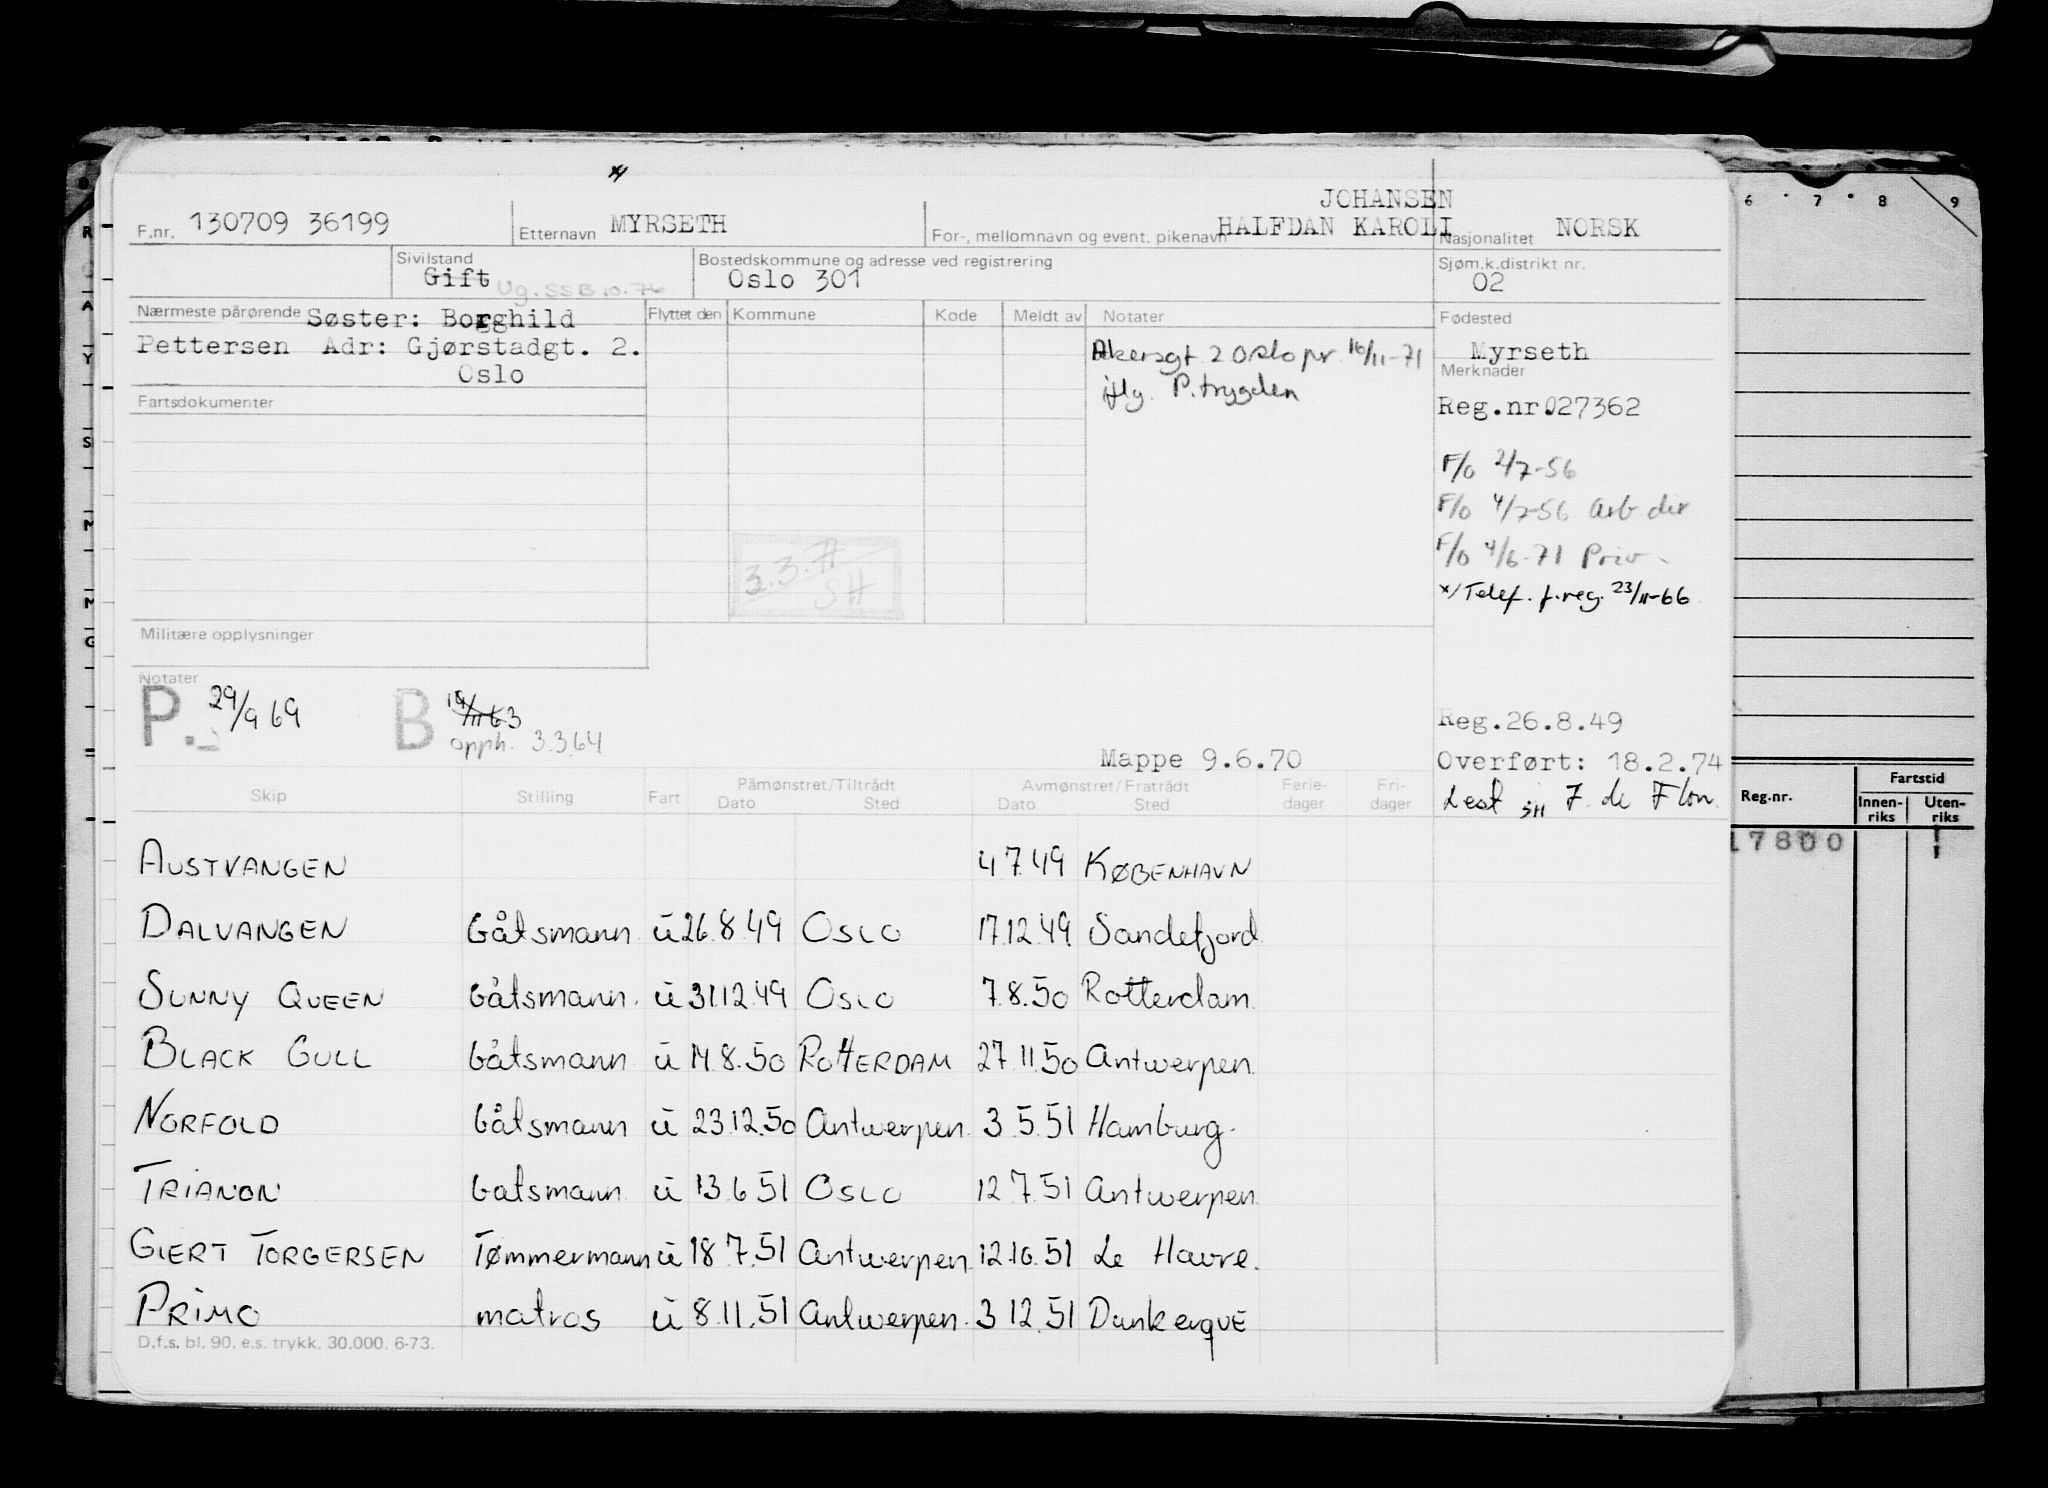 x/
JOHANSEN
F.nr. 130709 36199 Etternavn MYRSETH For-, mellomnavn og event. pikenavn HALFDAN KAROLI Nasjonalitet NORSK
Sivilstand Bostedskommune og adresse ved registrering Sjøm.k.distrikt nr.
Gift Ug. SSB 10.76 Oslo 301 02
Nærmeste pårørende Søster: Borghild Flyttet den Kommune Kode Meldt av Notater Fødested
Pettersen Adr: Gjørstadgt. 2. Akersgt. 2 Oslo pr. 16/11-71 Myrseth
Oslo iflg. P.trygden Merknader
Fartsdokumenter Reg.nr.027362
F/o 2/7-56
F/o 4/7-56 Arb dir
F/o 4/6-71 Priv.
3.3.71
SH
x/ Telef. f.reg. 23/11-66
Militære opplysninger
Notater
P. 29/9 69 B 19/11 63
opph. 3.3.64
Reg.26.8.49
Mappe 9.6.70 Overført: 18.2.74
Lest SH F. de Flon.
Skip Stilling Fart Påmønstret/Tiltrådt Avmønstret/Fratrådt Ferie- Fri-
Dato Sted Dato Sted dager dager
AUSTVANGEN 4 7 49 KØBENHAVN
DALVANGEN båtsmann u 26.8.49 OSLO 17.12.49 Sandefjord
SUNNY QUEEN båtsmann. u 31.12.49 OSLO 7.8.50 Rotterdam.
BLACK GULL båtsmann u 14.8.50 ROTTERDAM 27.11.50 Antwerpen.
NORFOLD båtsmann u 23.12.50 Antwerpen. 3.5.51 Hamburg.
TRIANON batsmann u 13.6 51 OSLO 12 7.51 Antwerpen
GIERT TORGERSEN Tømmermann u 18 7.51 Antwerpen 12.10.51 Le Havre.
PRIMO matros u 8.11.51 Antwerpen. 3 12.51 DunkerquE
D.f.s. bl. 90. e.s. trykk. 30.000. 6-73.
6 7 8 9
Reg.nr. Fartstid
Innen-riks Uten-riks
17800
R
A
Y
S
M
M
G